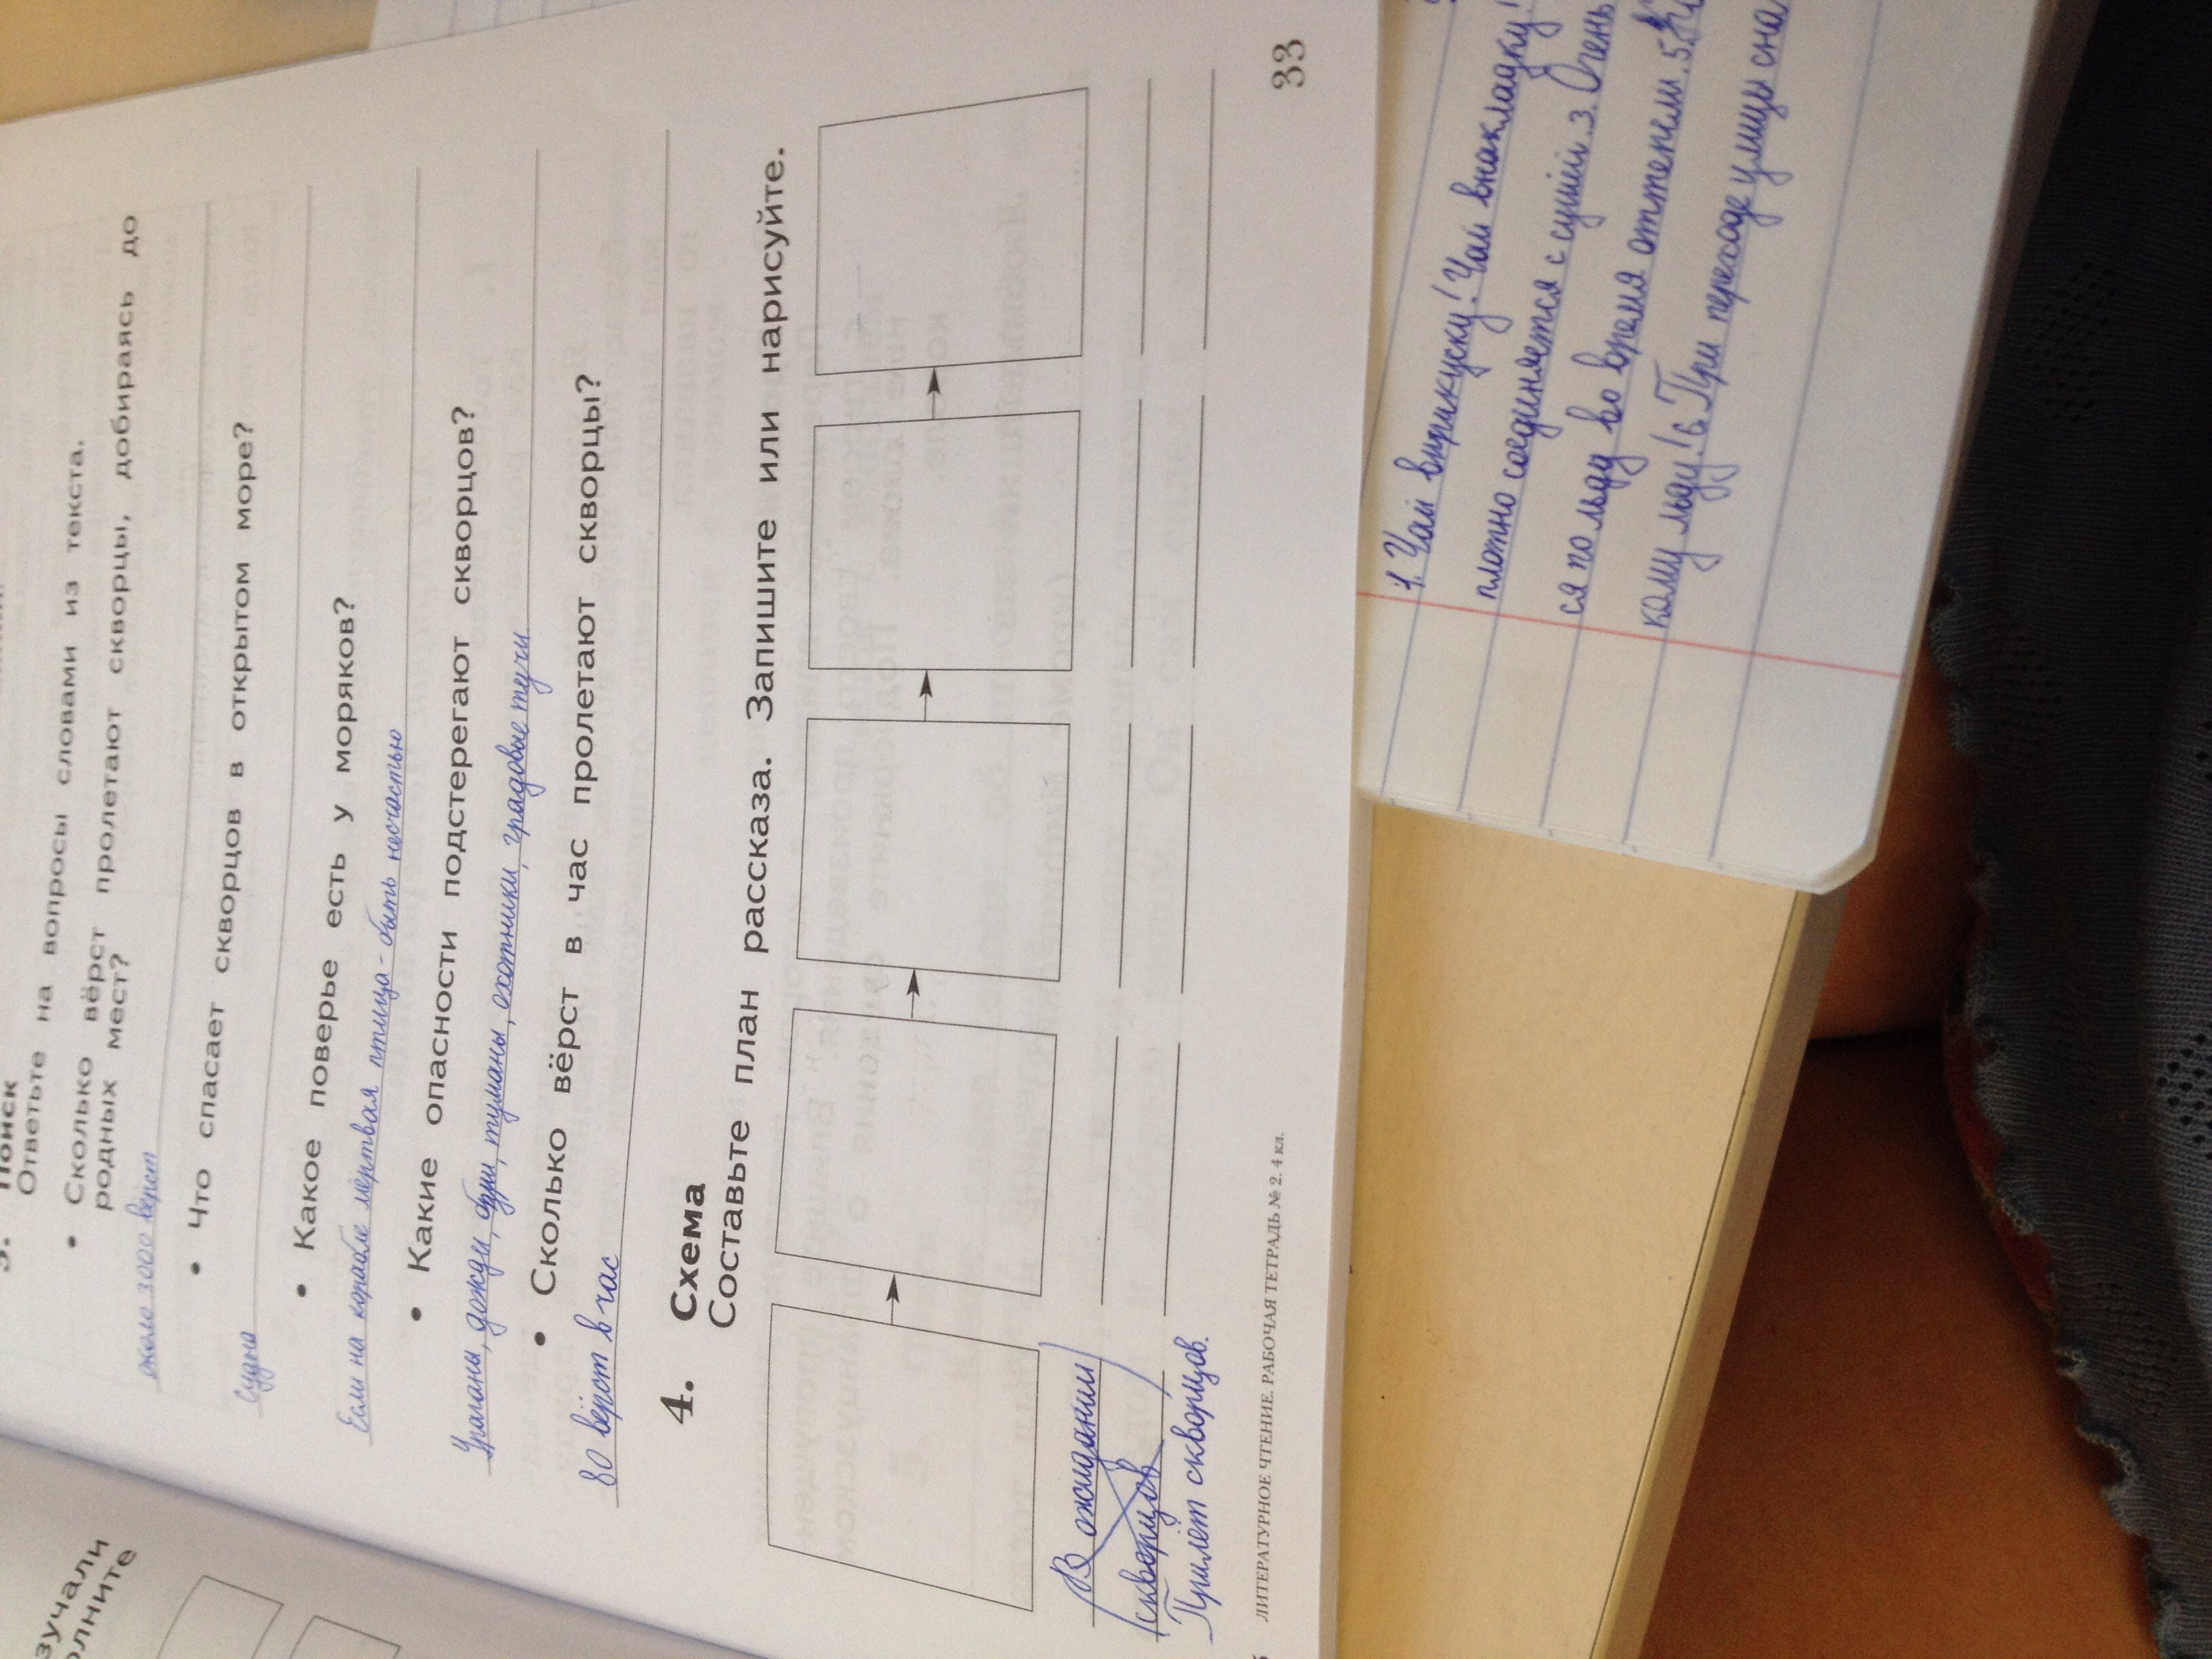 Поиск
Ответьте на вопросы словами из текста.
• Сколько вёрст пролетают скворцы, добираясь до
родных мест?
около 3000 вёрст
• Что спасает скворцов в открытом море?
Судно
• Какое поверье есть у моряков?
Если на корабле мёртвая птица - быть несчастью
• Какие опасности подстерегают скворцов?
Ураганы, дожди, бури, туманы, охотники, градовые тучи
• Сколько вёрст в час пролетают скворцы?
80 вёрст в час
4. Схема
Составьте план рассказа. Запишите или нарисуйте.
В ожидании
скворцов
Прилёт скворцов.
ЛИТЕРАТУРНОЕ ЧТЕНИЕ. РАБОЧАЯ ТЕТРАДЬ № 2. 4 кл.
33
зучали
олните
1. Чай вприкуску! Чай внакладку!
плотно соединяется с сушей. 3. Очень
ся по льду во время оттепели. 5.
кому льду! 6. При переходе улицы сна